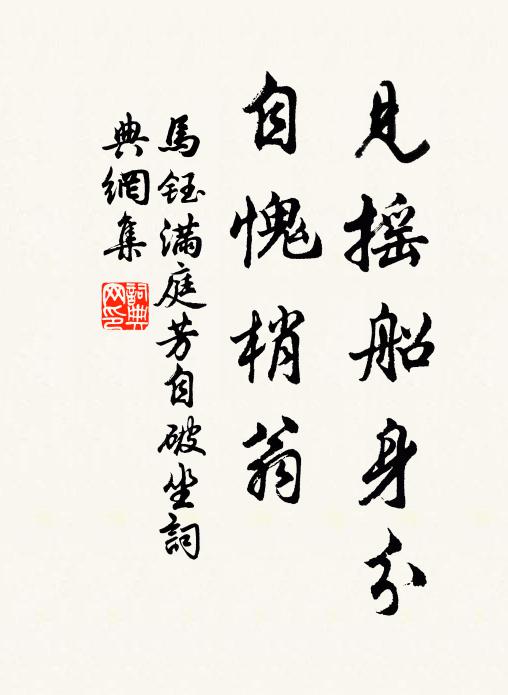 見搖船身分
自愧梢翁
馬鈺滿庭芳自破坐詞
典網集
詞典網印